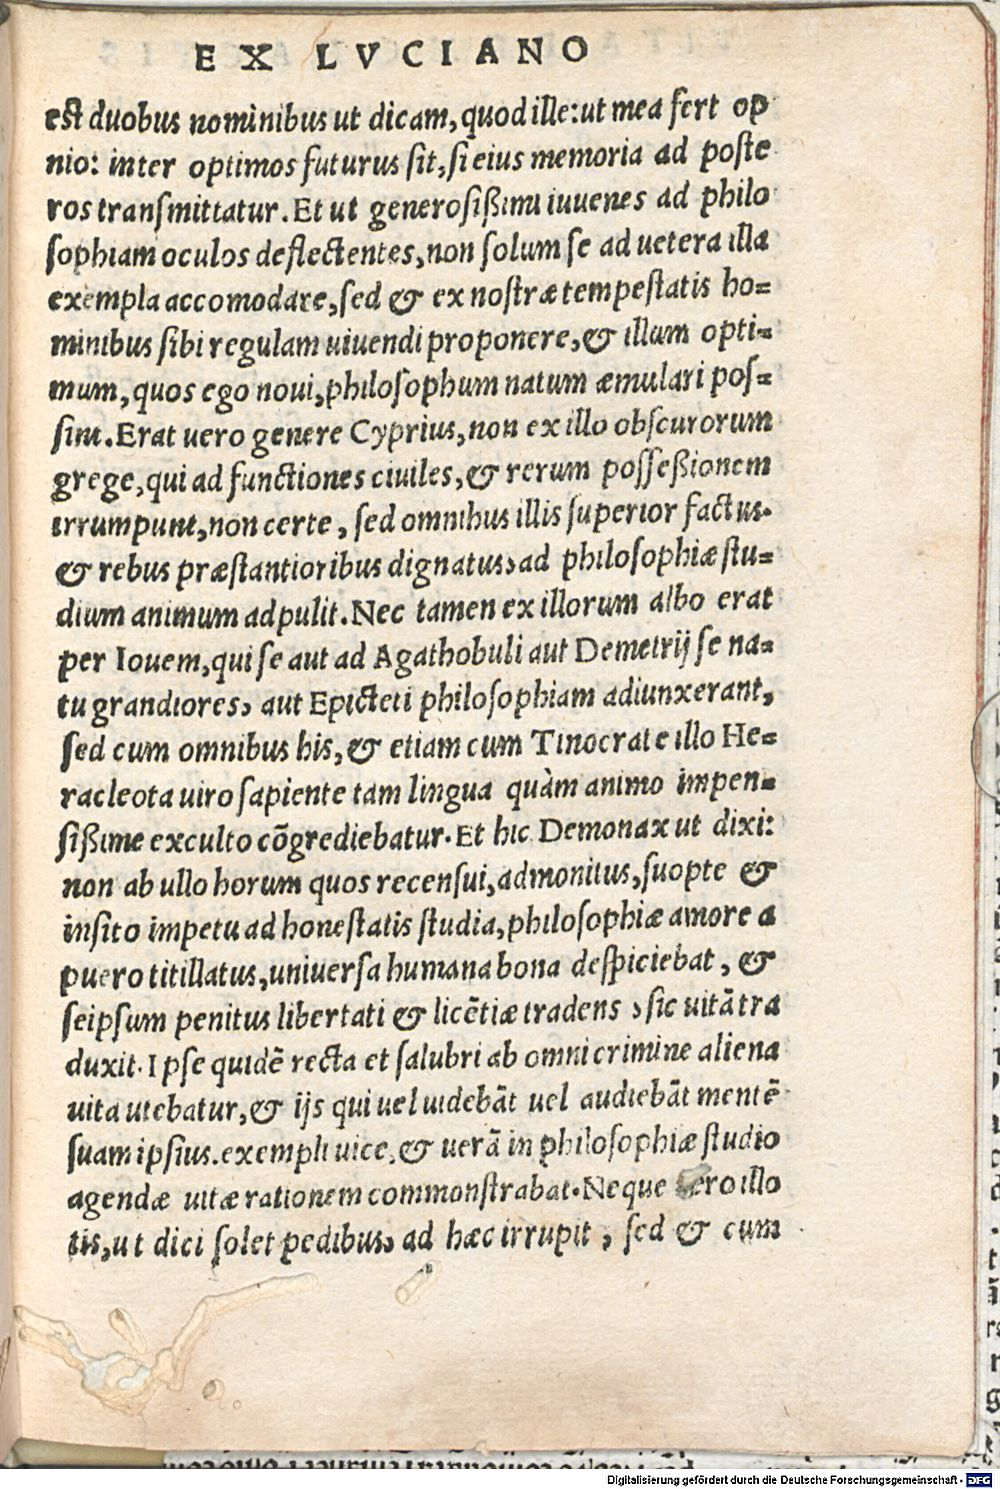 EX LVCIANO
est duobus nominibus ut dicam, quod ille: ut mea fert op
nio: inter optimos futurus sit, si eius memoria ad poste
ros transmittatur. Et ut generosißimi iuuenes ad philo
sophiam oculos deflectentes, non solum se ad uetera illa
exempla accomodare, sed & ex nostræ tempestatis ho=
minibus sibi regulam uiuendi proponere, & illum opti=
mum, quos ego noui, philosophum natum æmulari pos=
sint. Erat uero genere Cyprius, non ex illo obscurorum
grege, qui ad functiones ciuiles, & rerum possessionem
irrumpunt, non certe, sed omnibus illis superior factus.
& rebus præstantioribus dignatus, ad philosophiæ stu=
dium animum adpulit. Nec tamen ex illorum albo erat
per Iouem, qui se aut ad Agathobuli aut Demetrij se na=
tu grandiores, aut Epicteti philosophiam adiunxerant,
sed cum omnibus his, & etiam cum Tinocrate illo He=
racleota uiro sapiente tam lingua quàm animo impen=
sißime exculto cõgrediebatur. Et hic Demonax ut dixi:
non ab ullo horum quos recensui, admonitus, suopte &
insito impetu ad honestatis studia, philosophiæ amore a
puero titillatus, uniuersa humana bona despiciebat, &
seipsum penitus libertati & licẽtiæ tradens, sic uitã tra
duxit. Ipse quidẽ recta et salubri ab omni crimine aliena
uita utebatur, & ijs qui uel uidebãt uel audiebãt mentẽ
suam ipsius. exempli uice. & uerã in philosophiæ studio
agendæ uitæ rationem commonstrabat. Neque uero illo
tis, ut dici solet pedibus, ad hæc irrupit, sed & cum
Digitalisierung gefördert durch die Deutsche Forschungsgemeinschaft - DFG